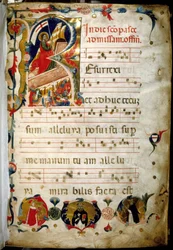 In die sco pasce
ad missam. offm.
Esurrexi
et adhuc tecum
sum alleluya posuisti sup
me manum tu am alle lu
ya mira bilis facta est